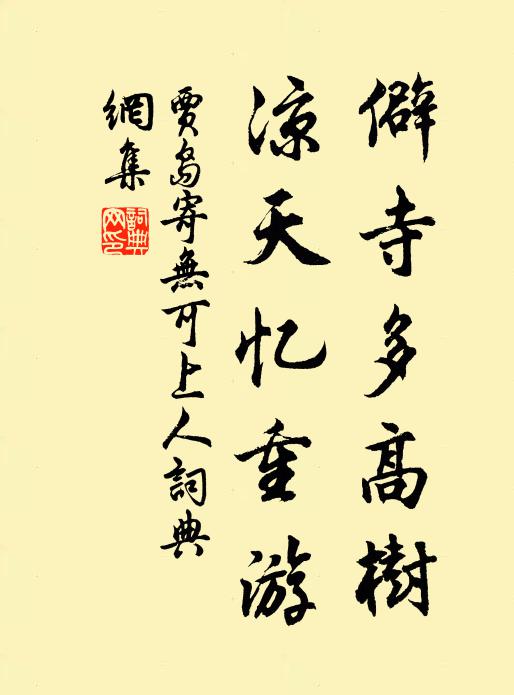 僻寺多高樹
涼天忆重游
賈島寄無可上人詞典
網集
詞典
网印